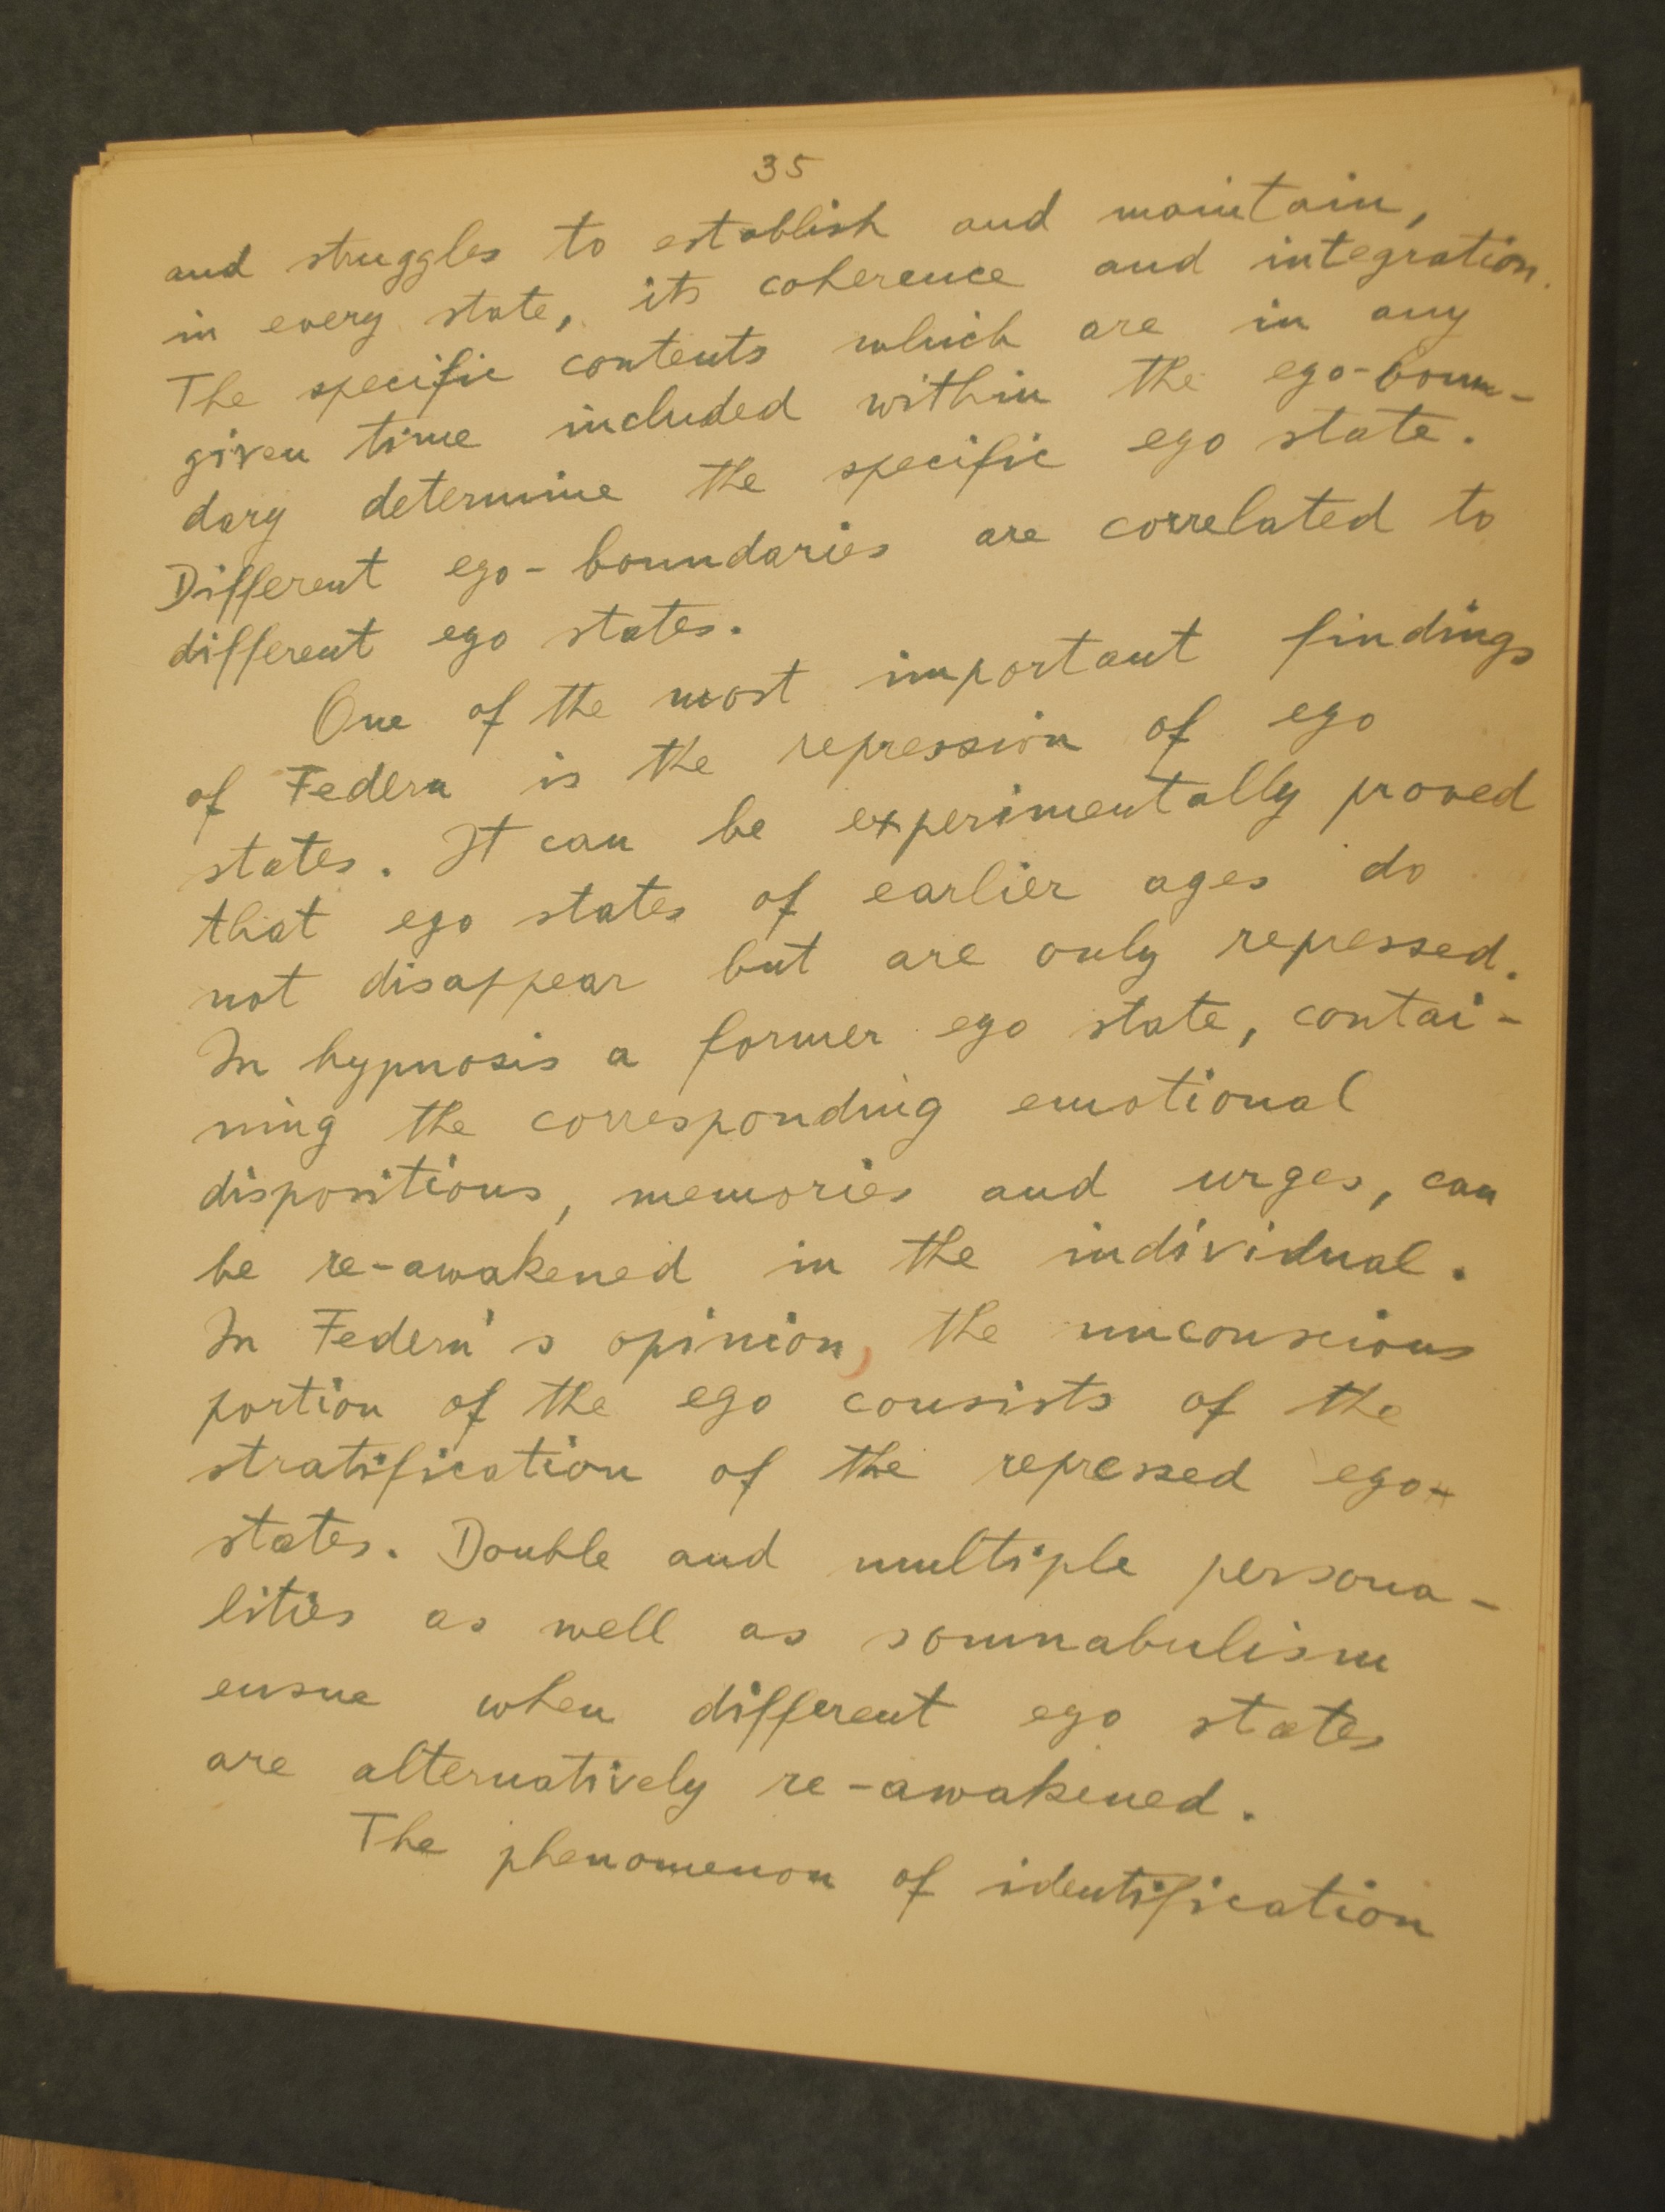 35
and struggles to establish and maintain,
in every state, its coherence and integration.
The specific contents which are in any
given time included within the ego-boun-
dary determine the specific ego state.
Different ego-boundaries are correlated to
different ego states.
One of the most important findings
of Federn is the repression of ego
states. It can be experimentally proved
that ego states of earlier ages do
not disappear but are only repressed.
In hypnosis a former ego state, contai-
ning the corresponding emotional
dispositions, memories and urges, can
be re-awakened in the individual.
In Federn's opinion, the unconscious
portion of the ego consists of the
stratification of the repressed ego-
states. Double and multiple persona-
lities as well as somnabulism
ensue when different ego states
are alternatively re-awakened.
The phenomenon of identification